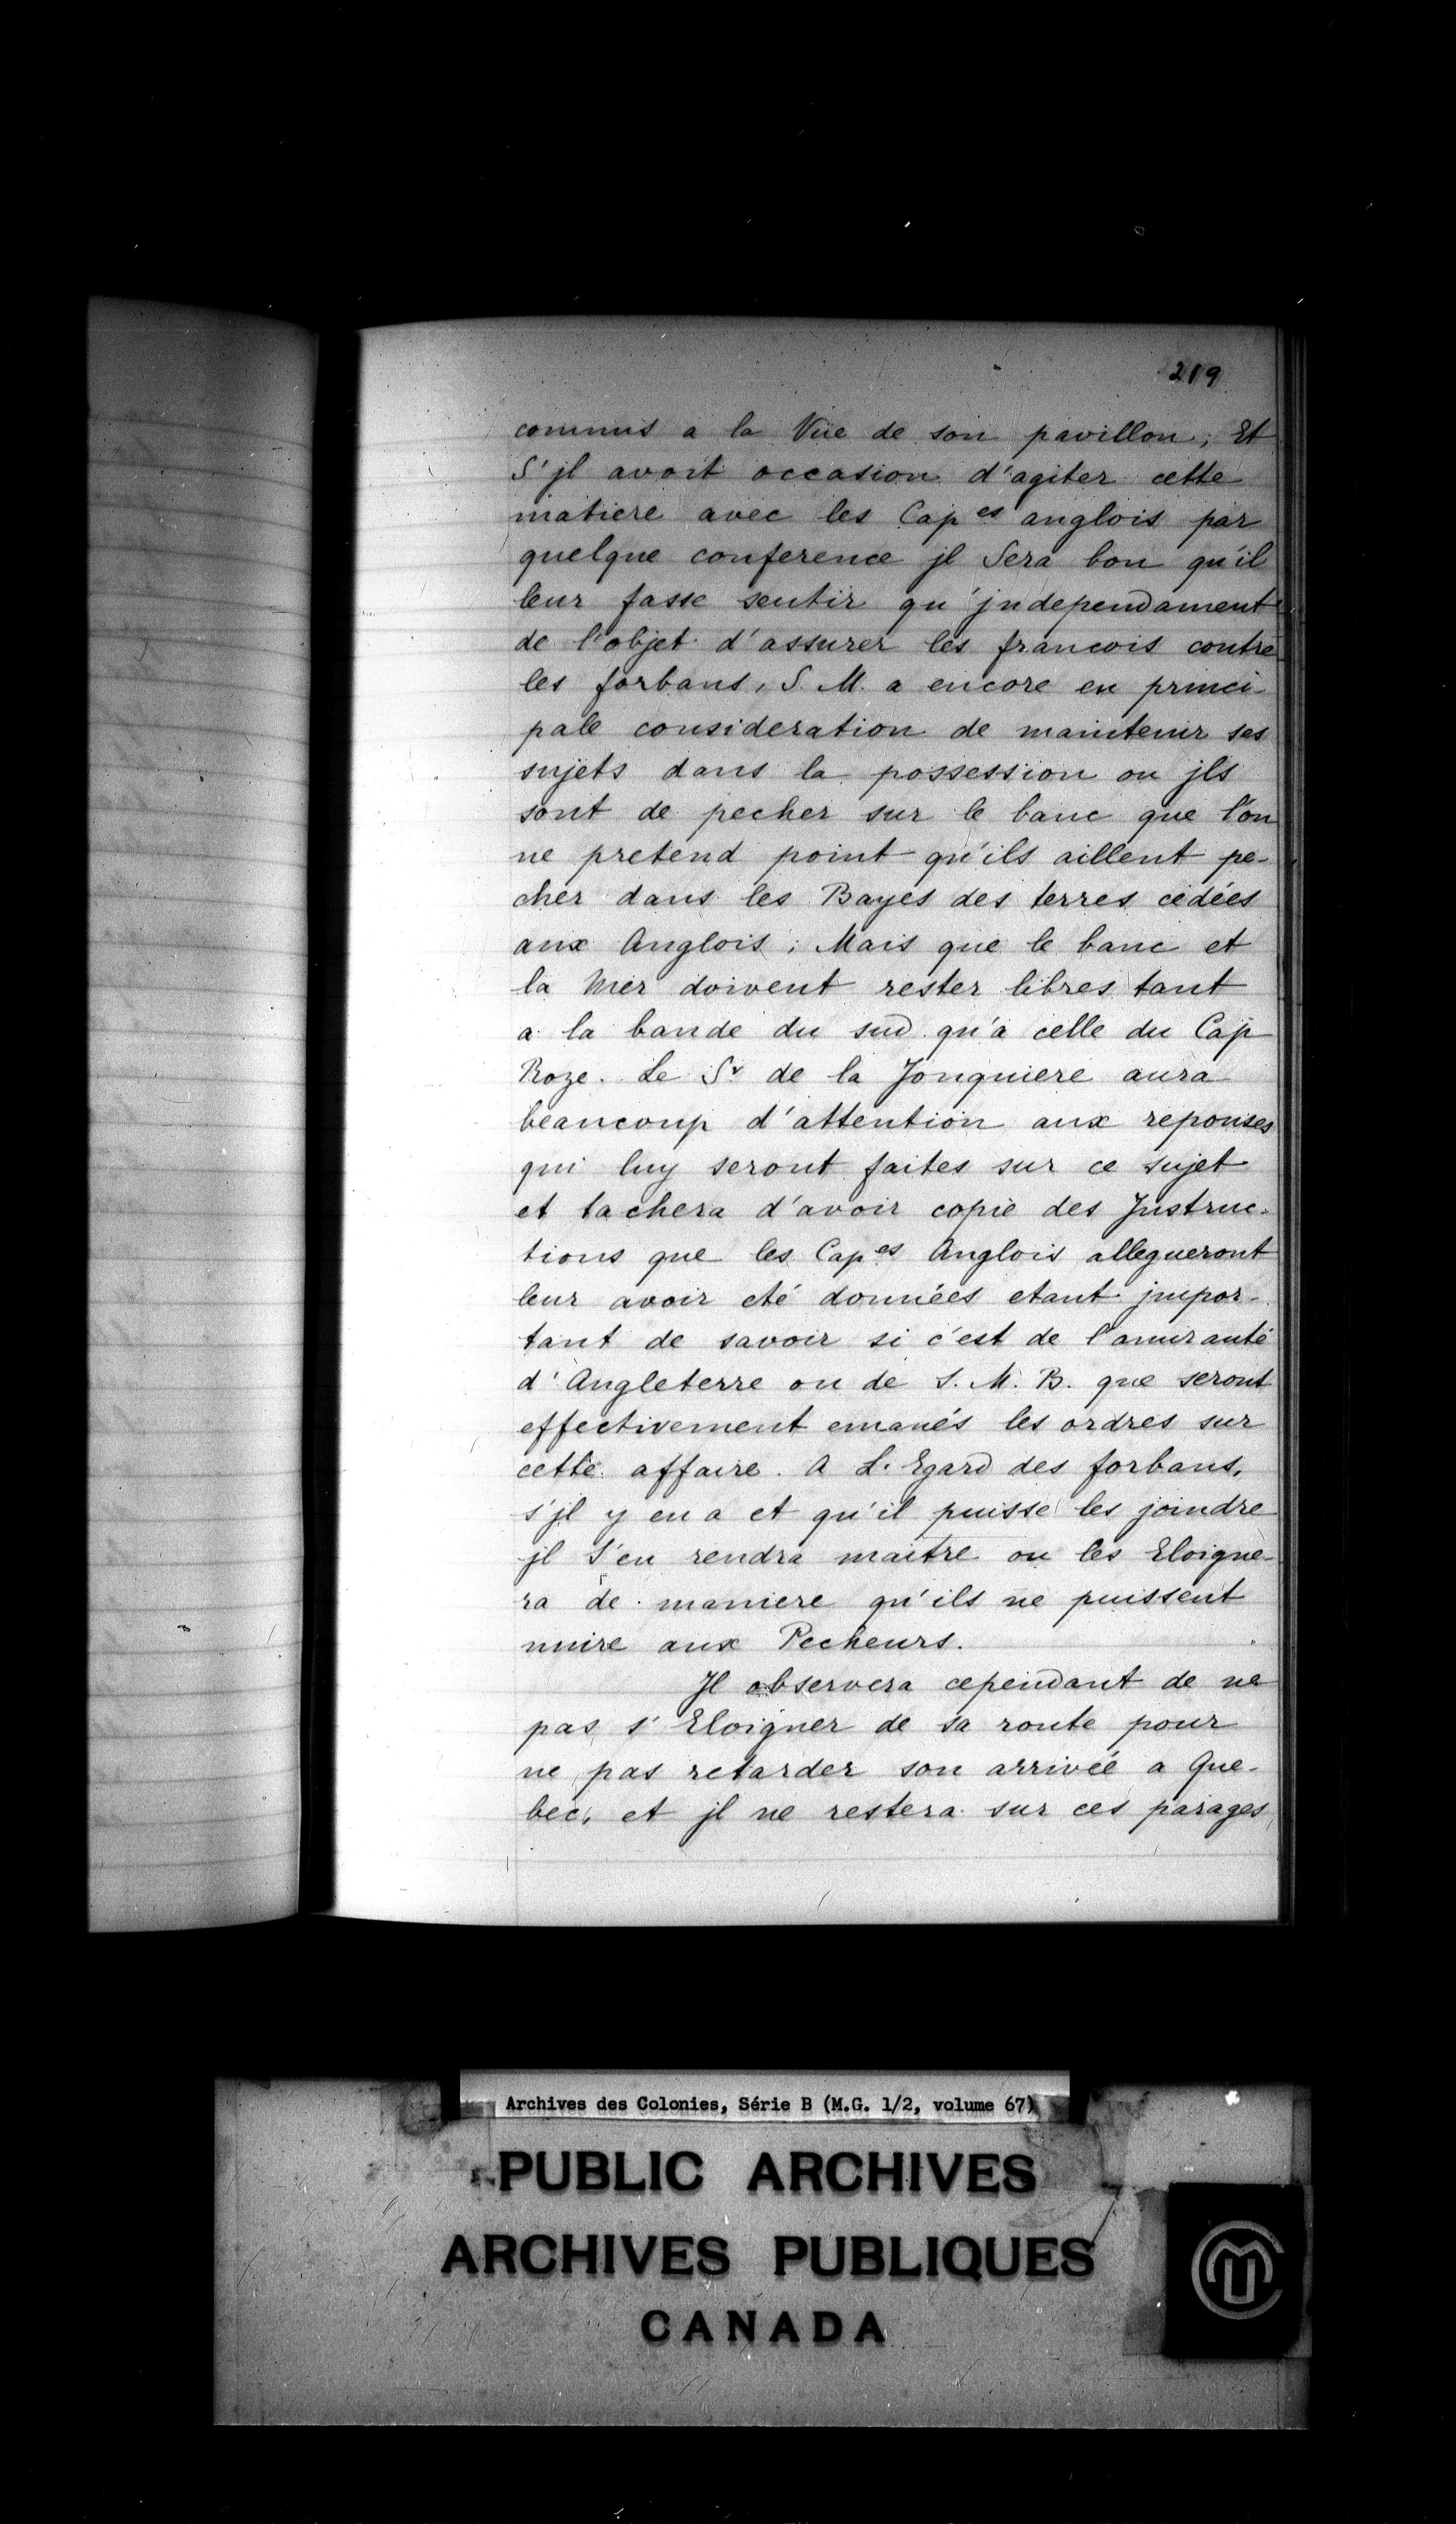 219
commis a la Vüe de son pavillon; Et
S'jl avoit occasion d'agiter cette
matiere avec les Cap.es anglois par
quelque conference jl Sera bon qu'il
leur fasse sentir qu'jndependament
de l'objet d'assurer les francois contre
les forbans, S. M. a encore en princi-
pale consideration de maintenir ses
sujets dans la possession ou jls
sont de pecher sur le banc que l'on
ne pretend point qu'ils aillent pe-
cher dans les Bayes des terres cedées
aux Anglois; Mais que le banc et
la Mer doivent rester libres tant
a la bande du sud qu'a celle du Cap
Roze. Le Sr de la Jonquiere aura
beaucoup d'attention aux reponses
qui luy seront faites sur ce sujet
et tachera d'avoir copie des Jnstruc-
tions que les Cap.es Anglois allegueront
leur avoir eté données etant jmpor-
tant de savoir si c'est de l'amirauté
d'Angleterre ou de S. M. B. que seront
effectivement emanés les ordres sur
cette affaire. A L'Egard des forbans,
s'jl y en a et qu'il puisse les joindre
jl S'en rendra maitre ou les Eloigne-
ra de maniere qu'ils ne puissent
nuire aux Pecheurs.
Jl observera cependant de ne
pas s'Eloigner de sa route pour
ne pas retarder son arrivée a Que-
bec, et jl ne restera sur ces parages
Archives des Colonies, Série B (M.G. 1/2, volume 67)
PUBLIC ARCHIVES
ARCHIVES PUBLIQUES
CANADA